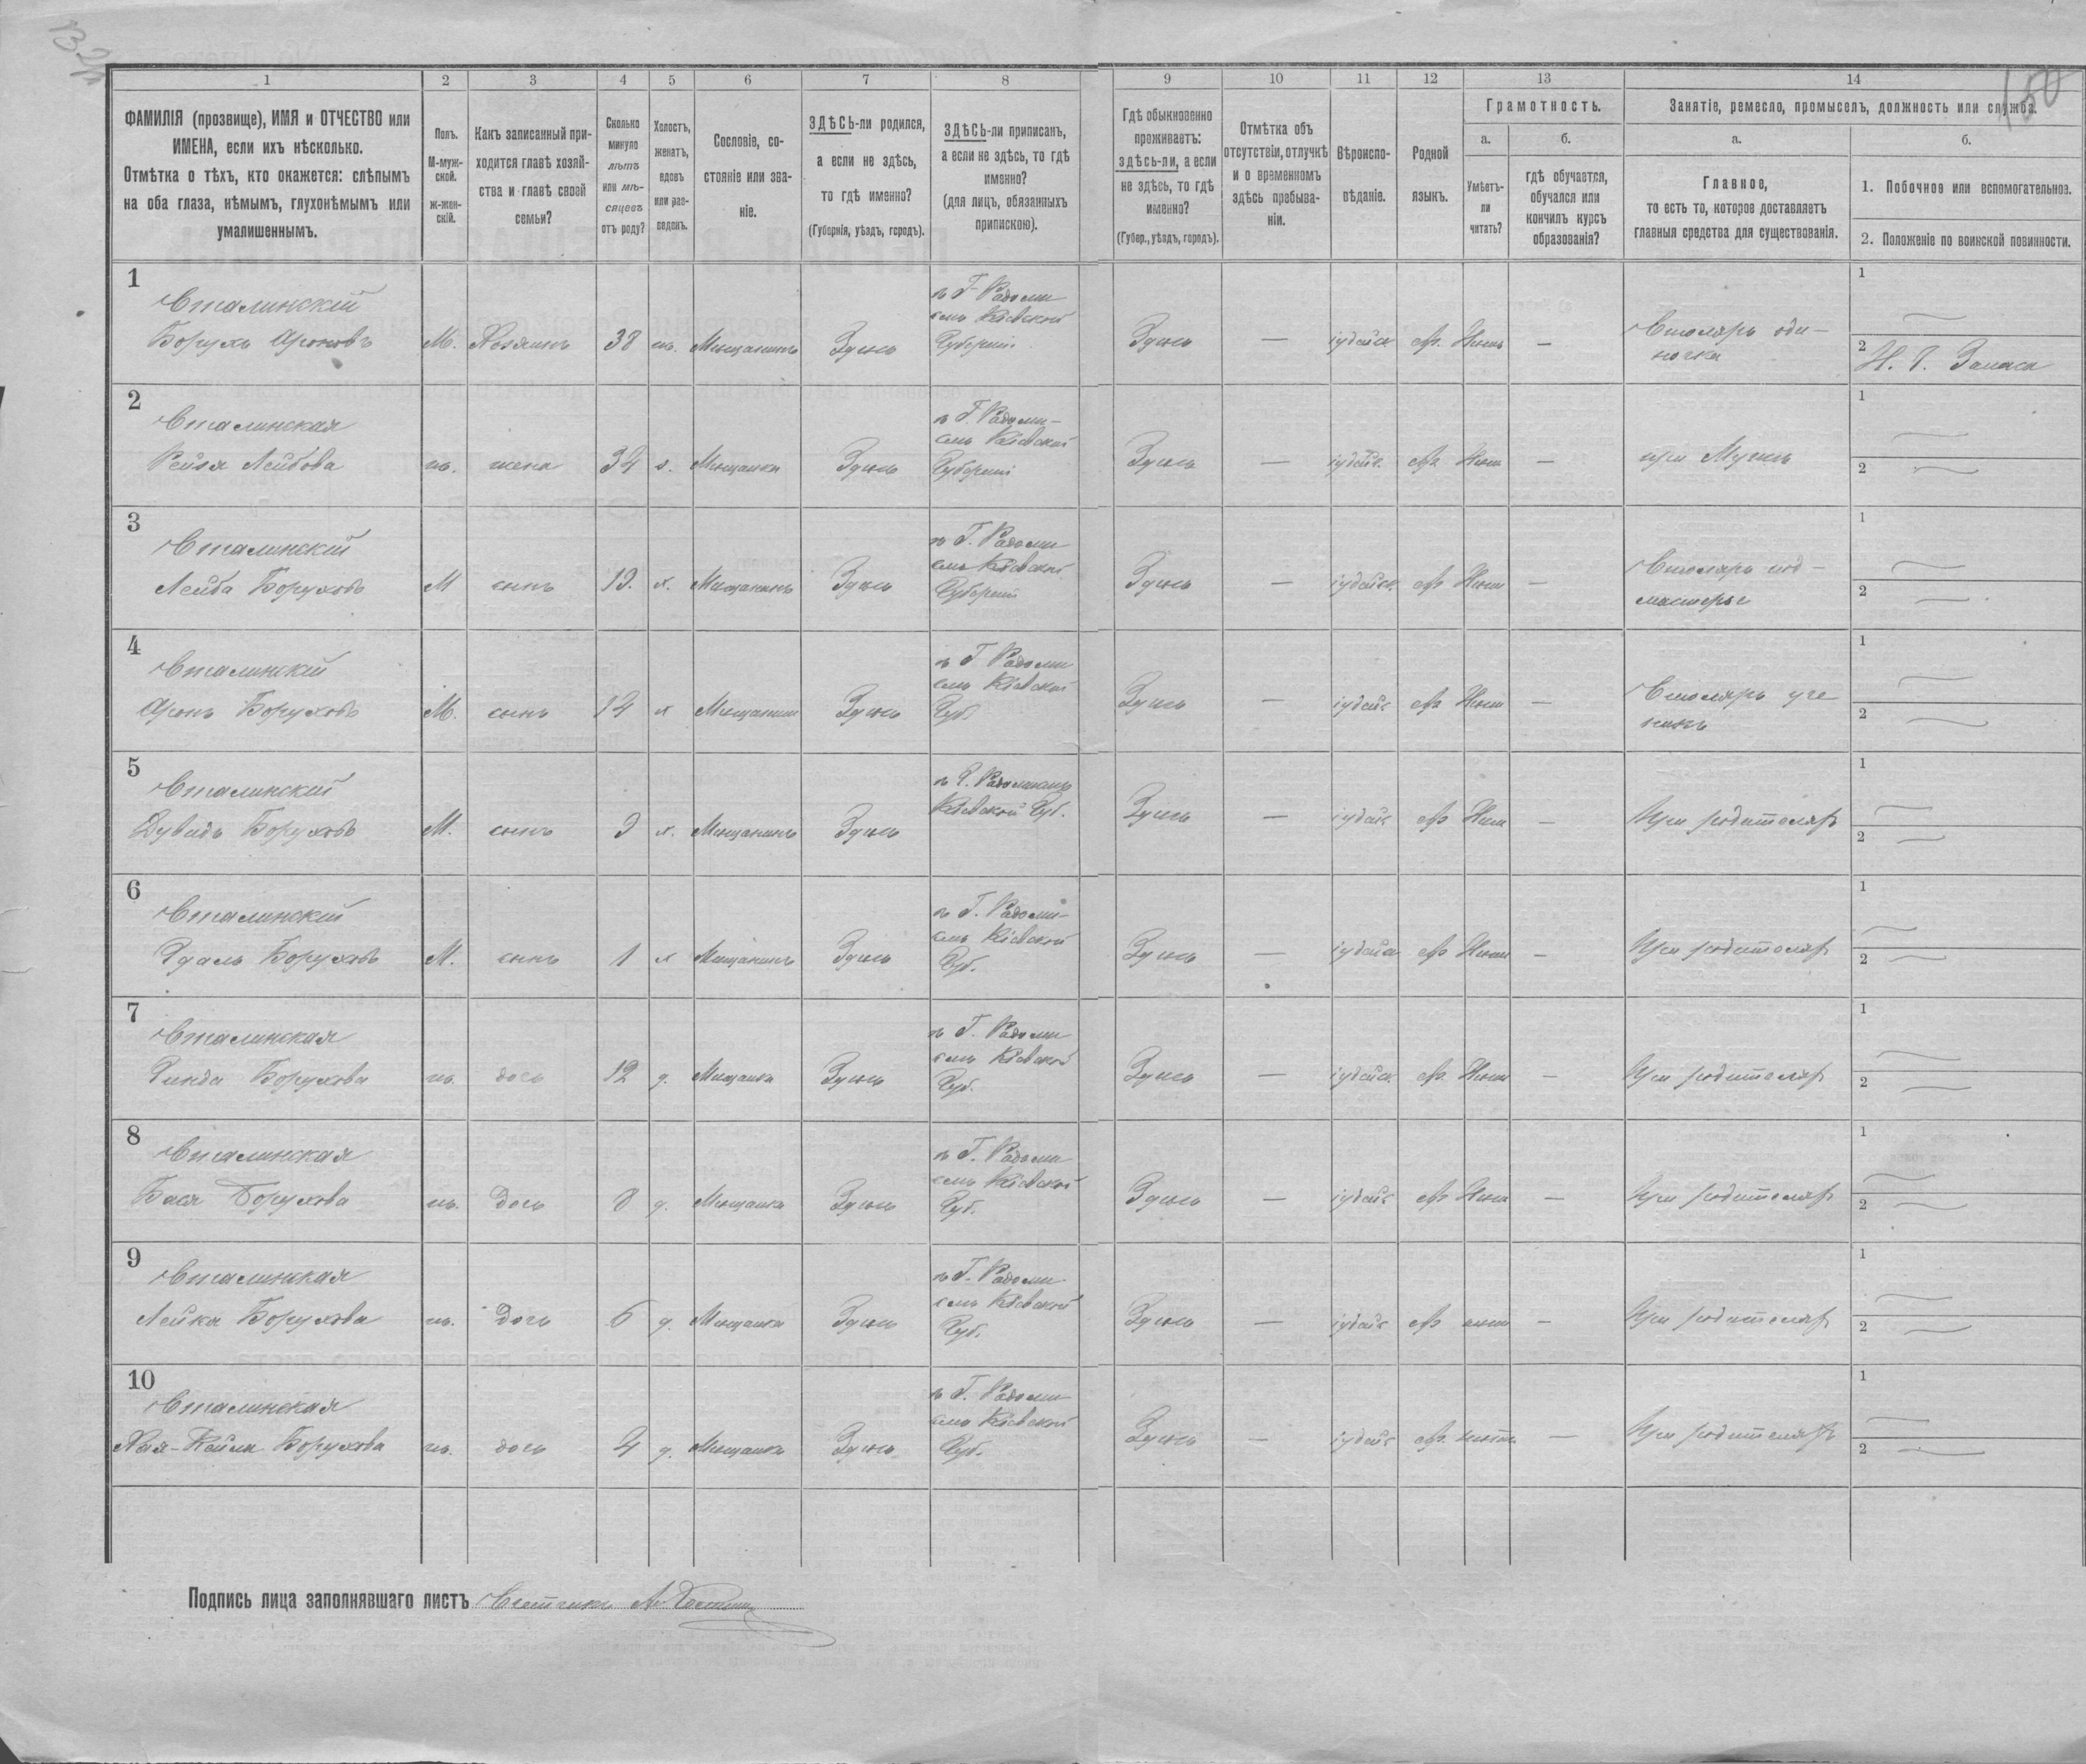 132
150
1
2
3
4
5
6
7
8
9
10
11
12
13
14
ФАМИЛІЯ (прозвище), ИМЯ и ОТЧЕСТВО или
ИМЕНА, если ихъ нѣсколько.
Отмѣтка о тѣхъ, кто окажется: слѣпымъ
на оба глаза, нѣмымъ, глухонѣмымъ или
умалишеннымъ.
Полъ.
М-муж-
ской.
ж-жен-
скій.
Какъ записанный при-
ходится главѣ хозяй-
ства и главѣ своей
семьи?
Сколько
минуло
лѣтъ
или мѣ-
сяцевъ
отъ роду?
Холостъ,
женатъ,
вдовъ
или раз-
веденъ.
Сословіе, со-
стояніе или зва-
ніе.
ЗДѢСЬ-ли родился,
а если не здѣсь,
то гдѣ именно?
(Губернія, уѣздъ, городъ).
ЗДѢСЬ-ли приписанъ,
а если не здѣсь, то гдѣ
именно?
(для лицъ, обязанныхъ
припискою).
Гдѣ обыкновенно
проживаетъ:
здѣсь-ли, а если
не здѣсь, то гдѣ
именно?
(Губер., уѣздъ, городъ).
Отмѣтка объ
отсутствіи, отлучкѣ
и о временномъ
здѣсь пребыва-
ніи.
Вѣроиспо-
вѣданіе.
Родной
языкъ.
Грамотность.
а.
Умѣетъ-
ли
читать?
б.
гдѣ обучается,
обучался или
кончилъ курсъ
образованія?
Занятіе, ремесло, промыселъ, должность или служба.
а.
Главное,
то есть то, которое доставляетъ
главныя средства для существованія.
б.
1. Побочное или вспомогательное.
2. Положеніе по воинской повинности.
1
Сталинскій
Борухъ Ароновъ
М. Хозяинъ 38 ж. Мещанинъ Здѣсь
въ Г. Радоми
слѣ Кіевской
Губерніи
Здѣсь — іудейск евр. Нѣтъ —
Столяръ оди-
ночка
1
2
Н. Р. Запаса
2
Сталинская
Рейзя Лейбова
ж. жена 34 з. Мещанка Здѣсь
въ Г. Радоми-
слѣ Кіевской
Губерніи
Здѣсь — іудейск евр Нѣтъ —
при Мужѣ
1
2
3
Сталинскій
Лейба Боруховъ
М сынъ х. Мещанинъ Здѣсь
въ Г. Радоми
слѣ Кіевской
Губерніи
Здѣсь — іудейск. евр Нѣтъ —
Столяръ под-
мастерье
1
2
4
Сталинскій
Аронъ Боруховъ
М. сынъ 14 х Мещанинъ Здѣсь
въ Г Радоми
слѣ Кіевской
Губ.
Здѣсь — іудейс евр Нѣтъ —
Столяръ уче
никъ
1
2
5
Сталинскій
Дувидъ Боруховъ
М. сынъ 9 х. Мещанинъ Здѣсь
въ Г. Радомислѣ
Кіевской Губ.
Здѣсь — іудейс евр Нѣтъ —
При родителяхъ
1
2
6
Сталинскій
Боруховъ
М. сынъ 1 х Мещанинъ Здѣсь
въ Г. Радоми-
слѣ Кіевской
Губ.
Здѣсь — іудейск евр Нѣтъ —
При родителяхъ
1
2
7
Сталинская
Гинда Борухова
ж. дочь 12 д. Мещанка Здѣсь
въ Г. Радоми
слѣ Кіевской
Губ.
Здѣсь — іудейск евр Нѣтъ —
При родителяхъ
1
2
8
Сталинская
Бася Борухова
ж. Дочь 8 д. Мещанка Здѣсь
въ Г. Радоми
слѣ Кіевской
Губ.
Здѣсь — іудейс евр Нѣтъ —
При родителяхъ
1
2
9
Сталинская
Лейка Борухова
ж. Дочь 6 д. Мещанка Здѣсь
въ Г. Радоми
слѣ Кіевской
Губ.
Здѣсь — іудейс евр нѣтъ —
При родителяхъ
1
2
10
Сталинская
Хая-Бейла Борухова
ж. дочь 4 д. Мещанка Здѣсь
въ Г. Радоми
слѣ Кіевской
Губ.
Здѣсь — іудейс евр. нѣтъ —
При родителяхъ
1
2
Подпись лица заполнявшаго листъ Счетчикъ